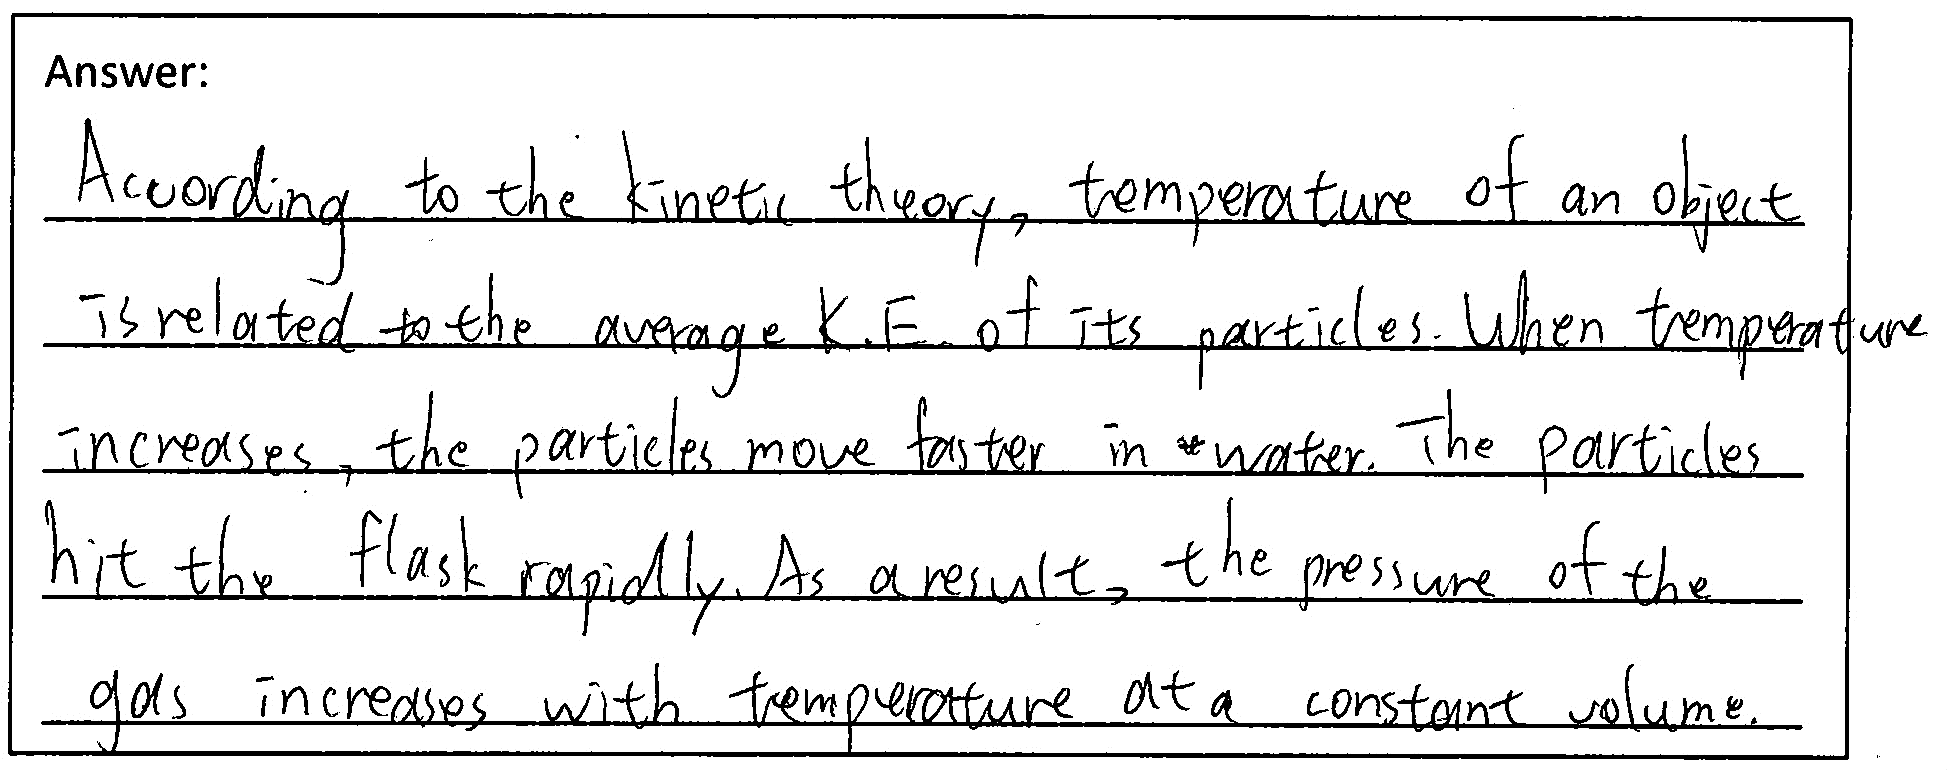 Answer:
According to the kinetic theory, temperature of an object
is related to the average K.E. of its particles. When temperature
increases, the particles move faster in water. The particles
hit the flask rapidly. As a result, the pressure of the
gas increases with temperature at a constant volume.